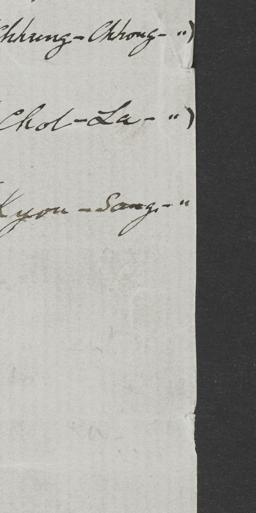 Chhung-Chhong-")
Chol-La-")
Kyou-Sang-"